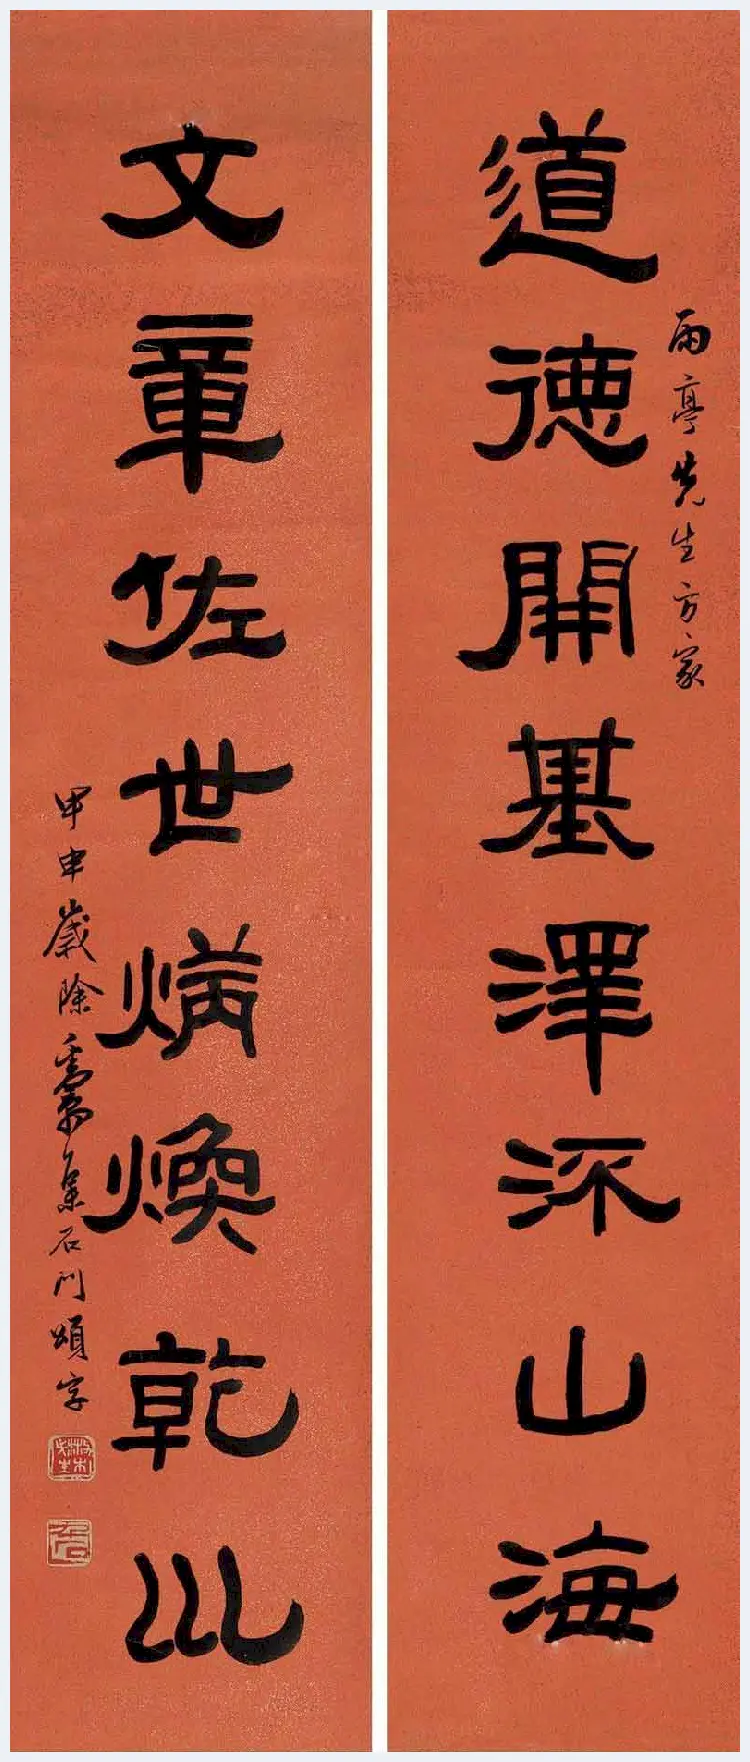 雨亭先生方家
道德開基澤山海
文章佐世炳煥乾巛
甲申歲除集石門頌字